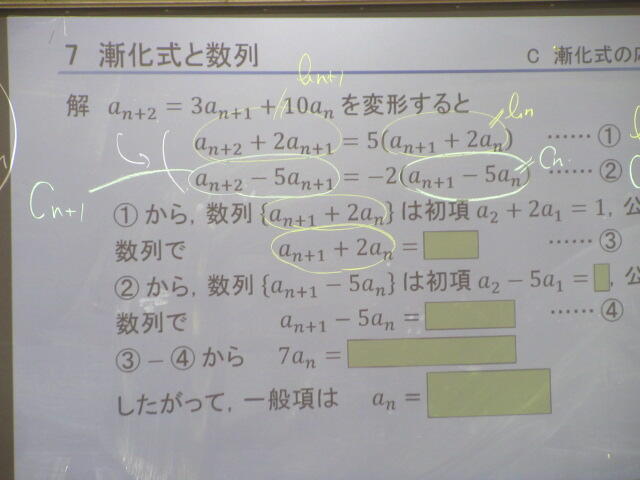 7 漸化式と数列
C 漸化式の
bn+1
解 aₙ₊₂ = 3aₙ₊₁ + 10aₙ を変形すると
bn
aₙ₊₂ + 2aₙ₊₁ = 5(aₙ₊₁ + 2aₙ) …… ①
Cn
aₙ₊₂ − 5aₙ₊₁ = −2(aₙ₊₁ − 5aₙ) …… ②
Cn+1
①から, 数列 {aₙ₊₁ + 2aₙ} は初項 a₂ + 2a₁ = 1, 公
数列で aₙ₊₁ + 2aₙ = …… ③
②から, 数列 {aₙ₊₁ − 5aₙ} は初項 a₂ − 5a₁ = , 公
数列で aₙ₊₁ − 5aₙ = …… ④
③ − ④ から 7aₙ =
したがって, 一般項は aₙ =